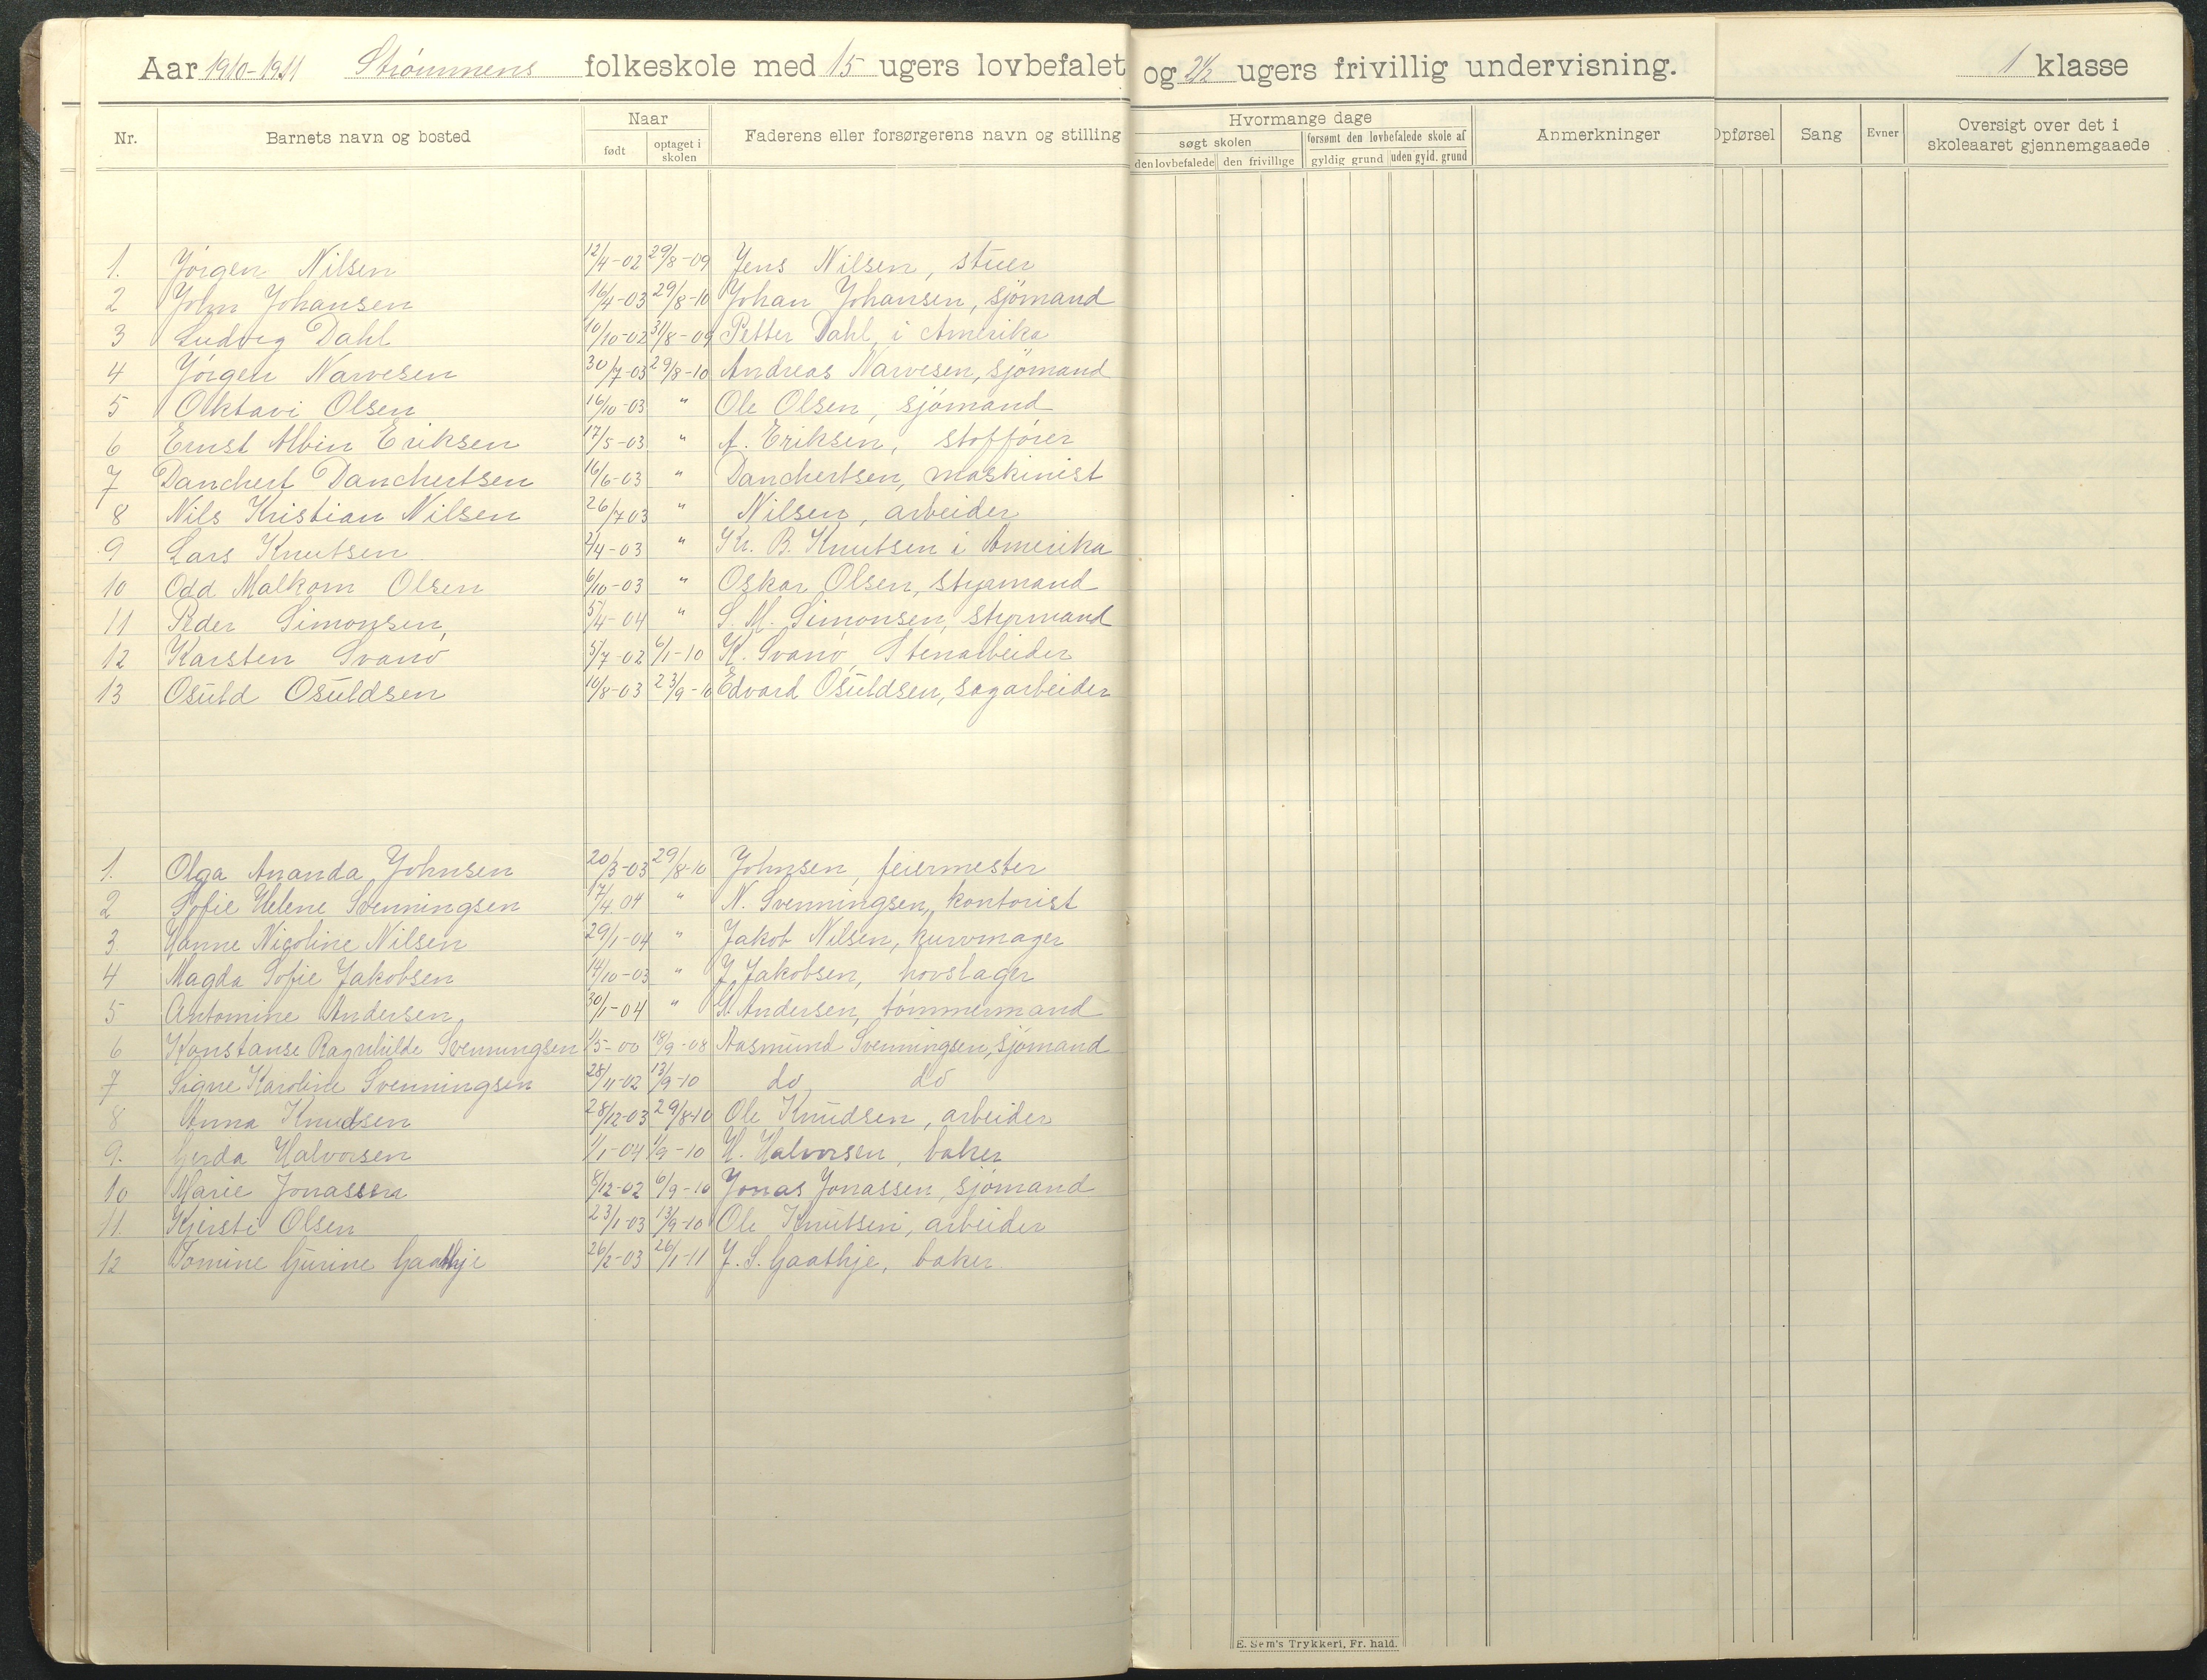 Aar 1910-1911 Strømmens folkeskole med 15 ugers lovbefalet og 2½ ugers frivillig undervisning. 1 klasse
Nr. Barnets navn og bosted Naar født optaget i skolen Faderens eller forsørgerens navn og stilling Hvormange dage søgt skolen den lovbefalede den frivillige forsømt den lovbefalede skole af gyldig grund uden gyld. grund Anmerkninger Opførsel Sang Evner Oversigt over det i skoleaaret gjennemgaaede
1. Jörgen Nilsen 12/4-02 29/8-09 Jens Nilsen, stuer
2 John Johansen 16/4-03 29/8-10 Johan Johansen, sjömand
3 Ludvig Dahl 10/10-02 31/8-09 Petter Dahl, i Amerika
4 Jörgen Narvesen 30/7-03 29/8-10 Andreas Narvesen, sjömand
5 Oktavi Olsen 16/10-03 " Ole Olsen, sjömand
6 Ernst Albin Eriksen 17/5-03 " A. Eriksen, stofförer
7 Danchert Danchertsen 16/6-03 " Danchertsen, maskinist
8 Nils Kristian Nilsen 26/7 03 " Nilsen, arbeider
9 Lars Knutsen 2/4-03 " Kr. B. Knutsen i Amerika
10 Odd Malkom Olsen 6/10-03 " Oskar Olsen, styrmand
11 Peder Simonsen 5/4-04 " S. M. Simonsen, styrmand
12 Karsten Svanö 5/7-02 6/1-10 K. Svanö, Stenarbeider
13 Osuld Osuldsen 10/8-03 23/9-10 Edvard Osuldsen, sagarbeider
1. Olga Ananda Johnsen 20/3-03 29/8-10 Johnsen, feiermester
2 Sofie Helene Svenningsen 17/4 04 " N. Svenningsen, kontorist
3 Hanne Nicoline Nilsen 29/1-04 " Jakob Nilsen, kurvmager
4 Magda Sofie Jakobsen 14/10-03 " J. Jakobsen, hovslager
5 Antomine Andersen 30/1-04 " Andersen, tömmermand
6 Konstanse Ragnhilde Svenningsen 1/5-00 18/9-08 Aasmund Svenningsen, sjömand
7 Signe Karoline Svenningsen 28/11-02 13/9-10 do do
8 Anna Knudsen 28/12-03 29/8-10 Ole Knudsen, arbeider
9. Gerda Halvorsen 1/1-04 1/9-10 H. Halvorsen, baker
10 Marie Jonassen 8/12-02 6/9-10 Jonas Jonassen, sjömand
11. Kjersti Olsen 23/1-03 13/9-10 Ole Knutsen, arbeider
12 Tomine Gurine Gaathje 26/2-03 26/1-11 J. S. Gaathje, baker
E. Sem's Trykkeri, Fr. hald.